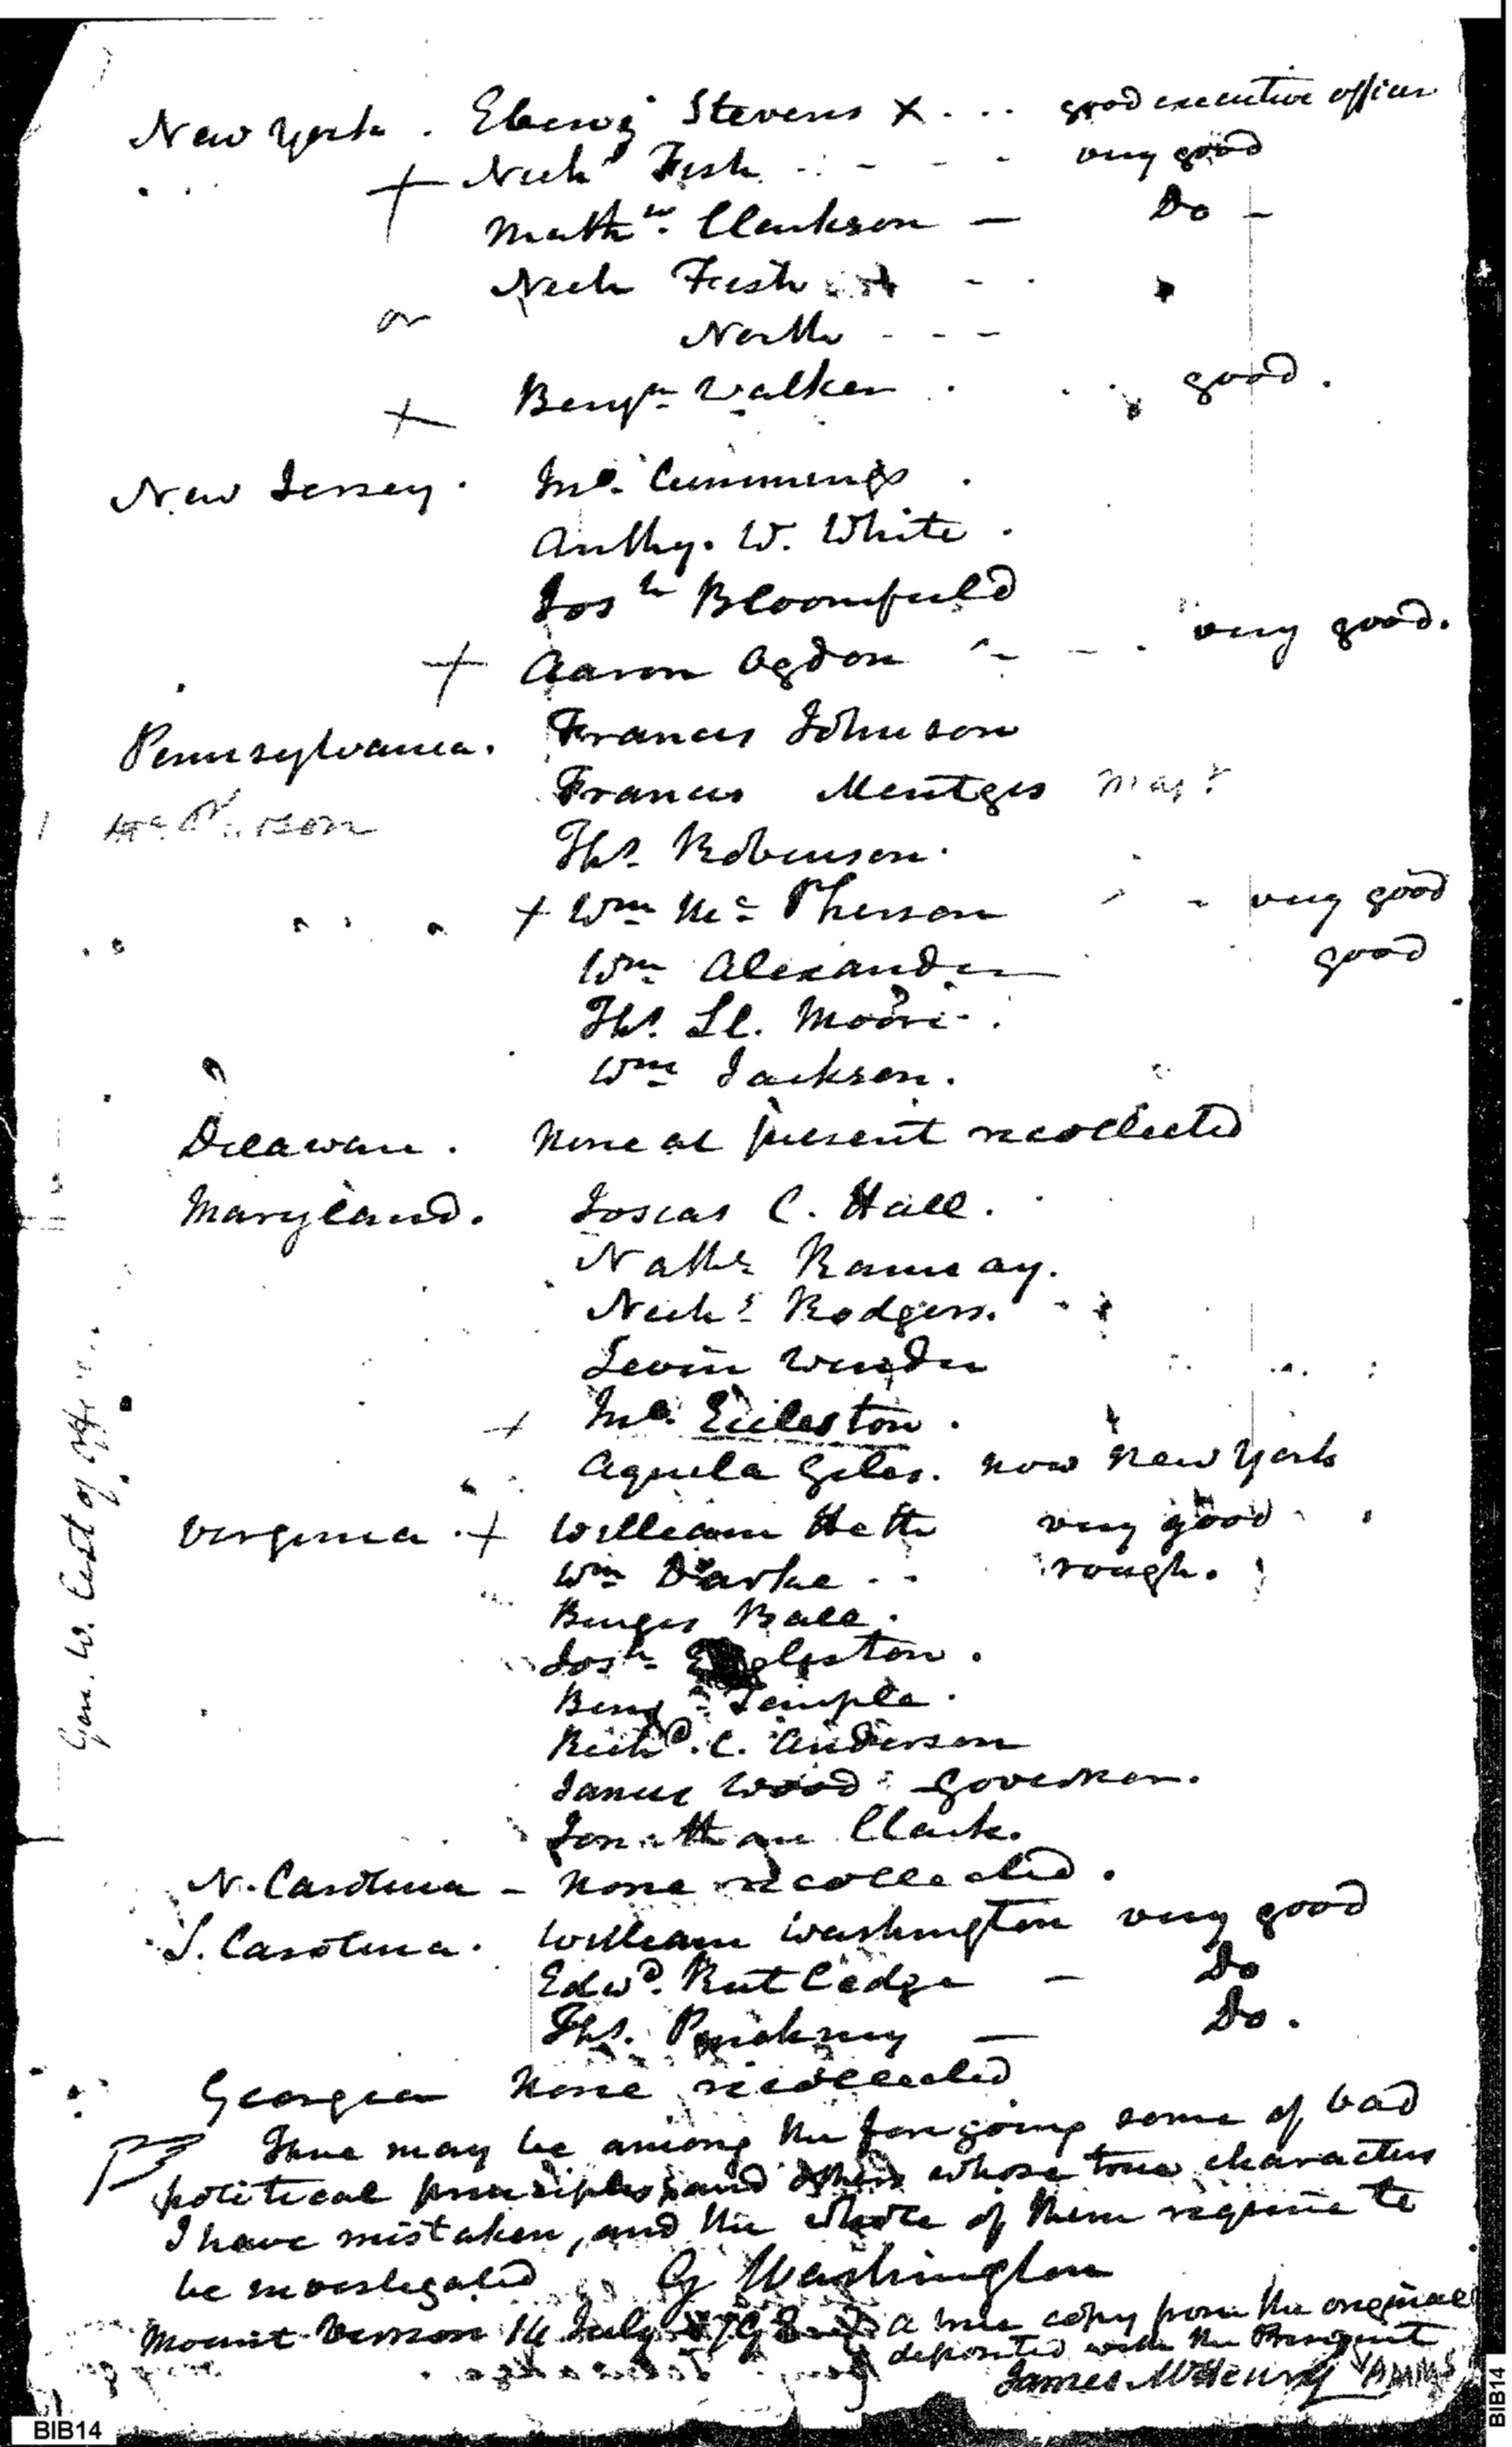 New York . Ebenz Stevens X ... good executive officer
+ Nich Fish - - - very good
Matthw. Clarkson — Do —
Nich Fish - -
or North - - -
+ Benjn Walker . . . good .
New Jersey . Jno. Cummings .
Anthy. W. White .
Josh Bloomfield
+ Aaron Ogdon - - . very good.
Pennsylvania . Francis Johnson
Francis Mentges Majr
Ths. Robinson .
+ Wm Mc Pherson - very good
Wm Alexander good
Ths. Ll. Moore .
Wm Jackson .
Delaware . None at present recollected
Maryland . Josias C. Hall .
Nathl Ramsay .
Nichs Rodgers .
Levin Winder
+ Jno. Eccleston .
Aquila Giles . now New York
Virginia . + William Heth very good
Wm Darke . . rough .
Burges Ball .
Josh Egleston .
Benj Temple .
Richd. C. Anderson
James Wood Governor .
Jonathan Clark .
N. Carolina — None recollected .
S. Carolina . William Washington very good
Edwd. Rutledge — Do
Ths. Pinckney — Do .
Georgia None recollected
There may be among the foregoing some of bad
political principles, and others whose true characters
I have mistaken, and the whole of them require to
be investigated G Washington
Mount Vernon 14 July 1798
a true copy from the original
deposited with the President
James McHenry Adams
Gen. W. List of
BIB14
BIB14